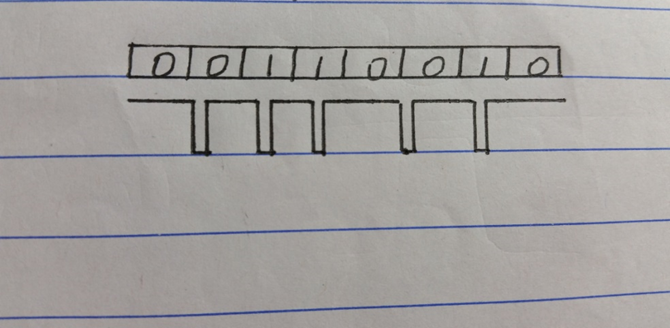 0 0 1 1 0 0 1 0